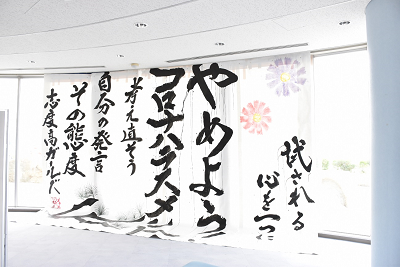 試される
心を一つに
やめよう
コロナハラスメン
考え直そう
自分の発言
その態度